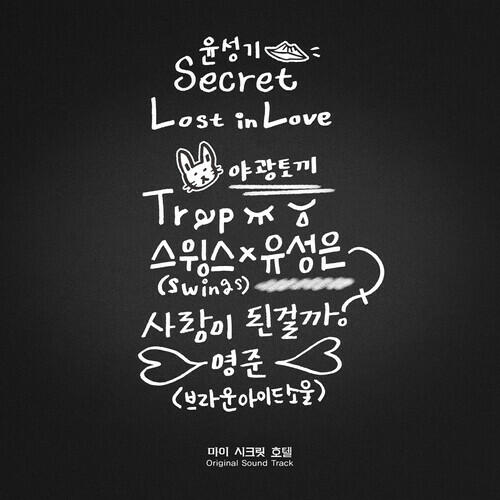 윤성기
Secret
Lost in Love
야광토끼
Trap
스윙스×유성은
(swings)
사랑이 된걸까?
영준
(브라운아이드소울)
마이 시크릿 호텔
Original Sound Track